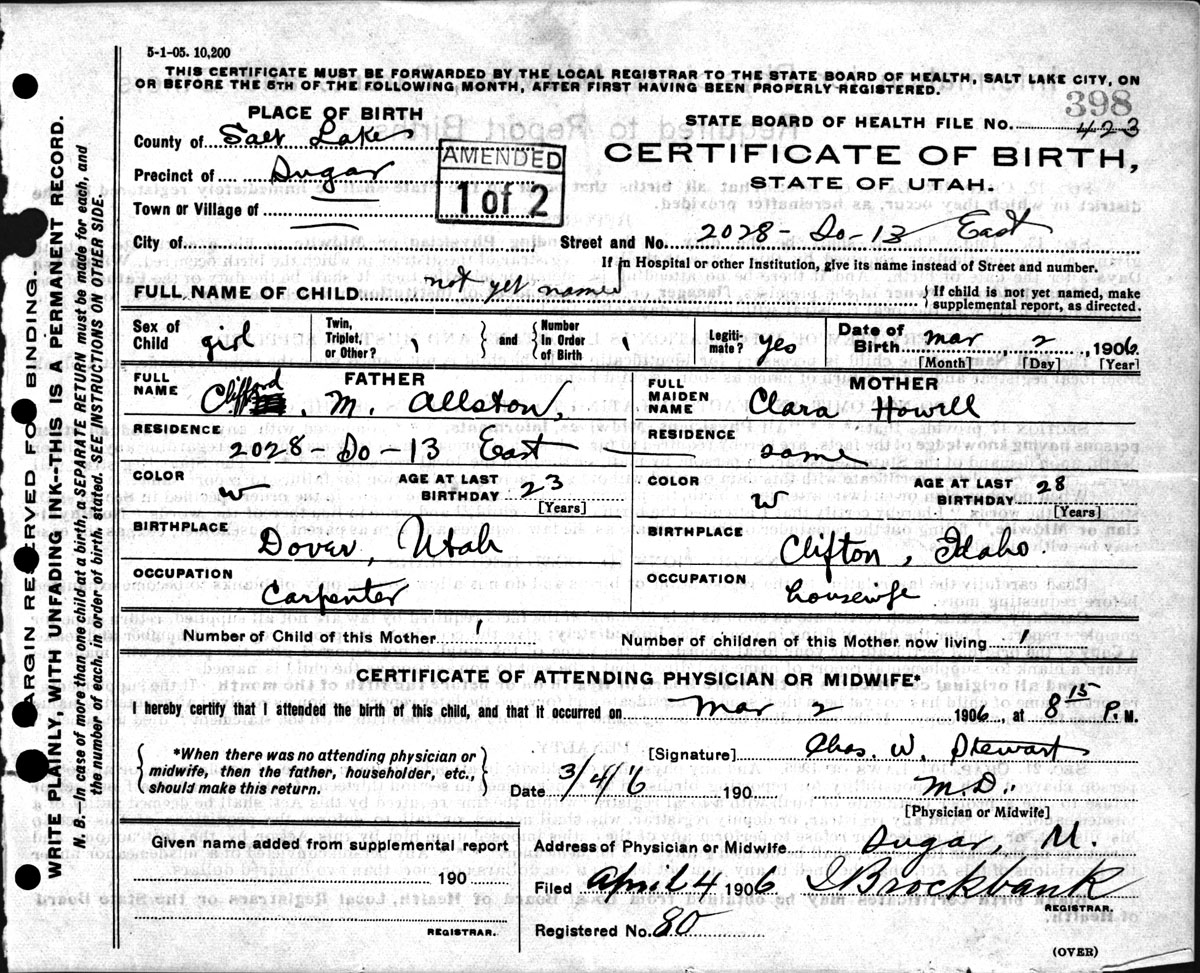 5-1-05. 10,200
THIS CERTIFICATE MUST BE FORWARDED BY THE LOCAL REGISTRAR TO THE STATE BOARD OF HEALTH, SALT LAKE CITY, ON
OR BEFORE THE 5TH OF THE FOLLOWING MONTH, AFTER FIRST HAVING BEEN PROPERLY REGISTERED.
398
PLACE OF BIRTH
STATE BOARD OF HEALTH FILE NO. 423
County of Salt Lake
CERTIFICATE OF BIRTH,
AMENDED
1 of 2
Precinct of Sugar
STATE OF UTAH.
Town or Village of
City of
Street and No. 2028 - So - 13 East
If in Hospital or other Institution, give its name instead of Street and number.
FULL NAME OF CHILD not yet named
{ If child is not yet named, make
supplemental report, as directed.
Sex of Child girl
Twin, Triplet, or Other? } and { Number In Order of Birth
Legiti-mate? yes
Date of Birth Mar 2, 1906
[Month] [Day] [Year]
FATHER
FULL NAME Clifford M. Allston,
MOTHER
FULL MAIDEN NAME Clara Howell
RESIDENCE 2028 - So - 13 East
RESIDENCE same
COLOR W
AGE AT LAST BIRTHDAY 23
[Years]
COLOR W
AGE AT LAST BIRTHDAY 28
[Years]
BIRTHPLACE Dover, Utah
BIRTHPLACE Clifton, Idaho
OCCUPATION Carpenter
OCCUPATION housewife
Number of Child of this Mother 1
Number of children of this Mother now living 1
CERTIFICATE OF ATTENDING PHYSICIAN OR MIDWIFE*
I hereby certify that I attended the birth of this child, and that it occurred on Mar 2 1906, at 8 15 P. M.
{ *When there was no attending physician or
midwife, then the father, householder, etc.,
should make this return. }
[Signature] Chas. W. Stewart
Date 3/4/6 190
M.D.
[Physician or Midwife]
Given name added from supplemental report
190
REGISTRAR.
Address of Physician or Midwife Sugar,
Filed April 4 1906 Brockbank
REGISTRAR.
Registered No. 80
(OVER)
MARGIN RESERVED FOR BINDING.
WRITE PLAINLY, WITH UNFADING INK--THIS IS A PERMANENT RECORD.
N. B.--In case of more than one child at a birth, a SEPARATE RETURN must be made for each, and
the number of each, in order of birth, stated. SEE INSTRUCTIONS ON OTHER SIDE.